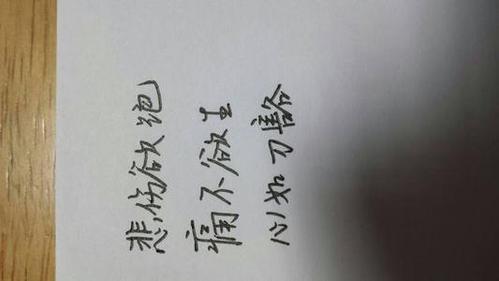 悲伤欲绝
痛不欲生
心如刀豁